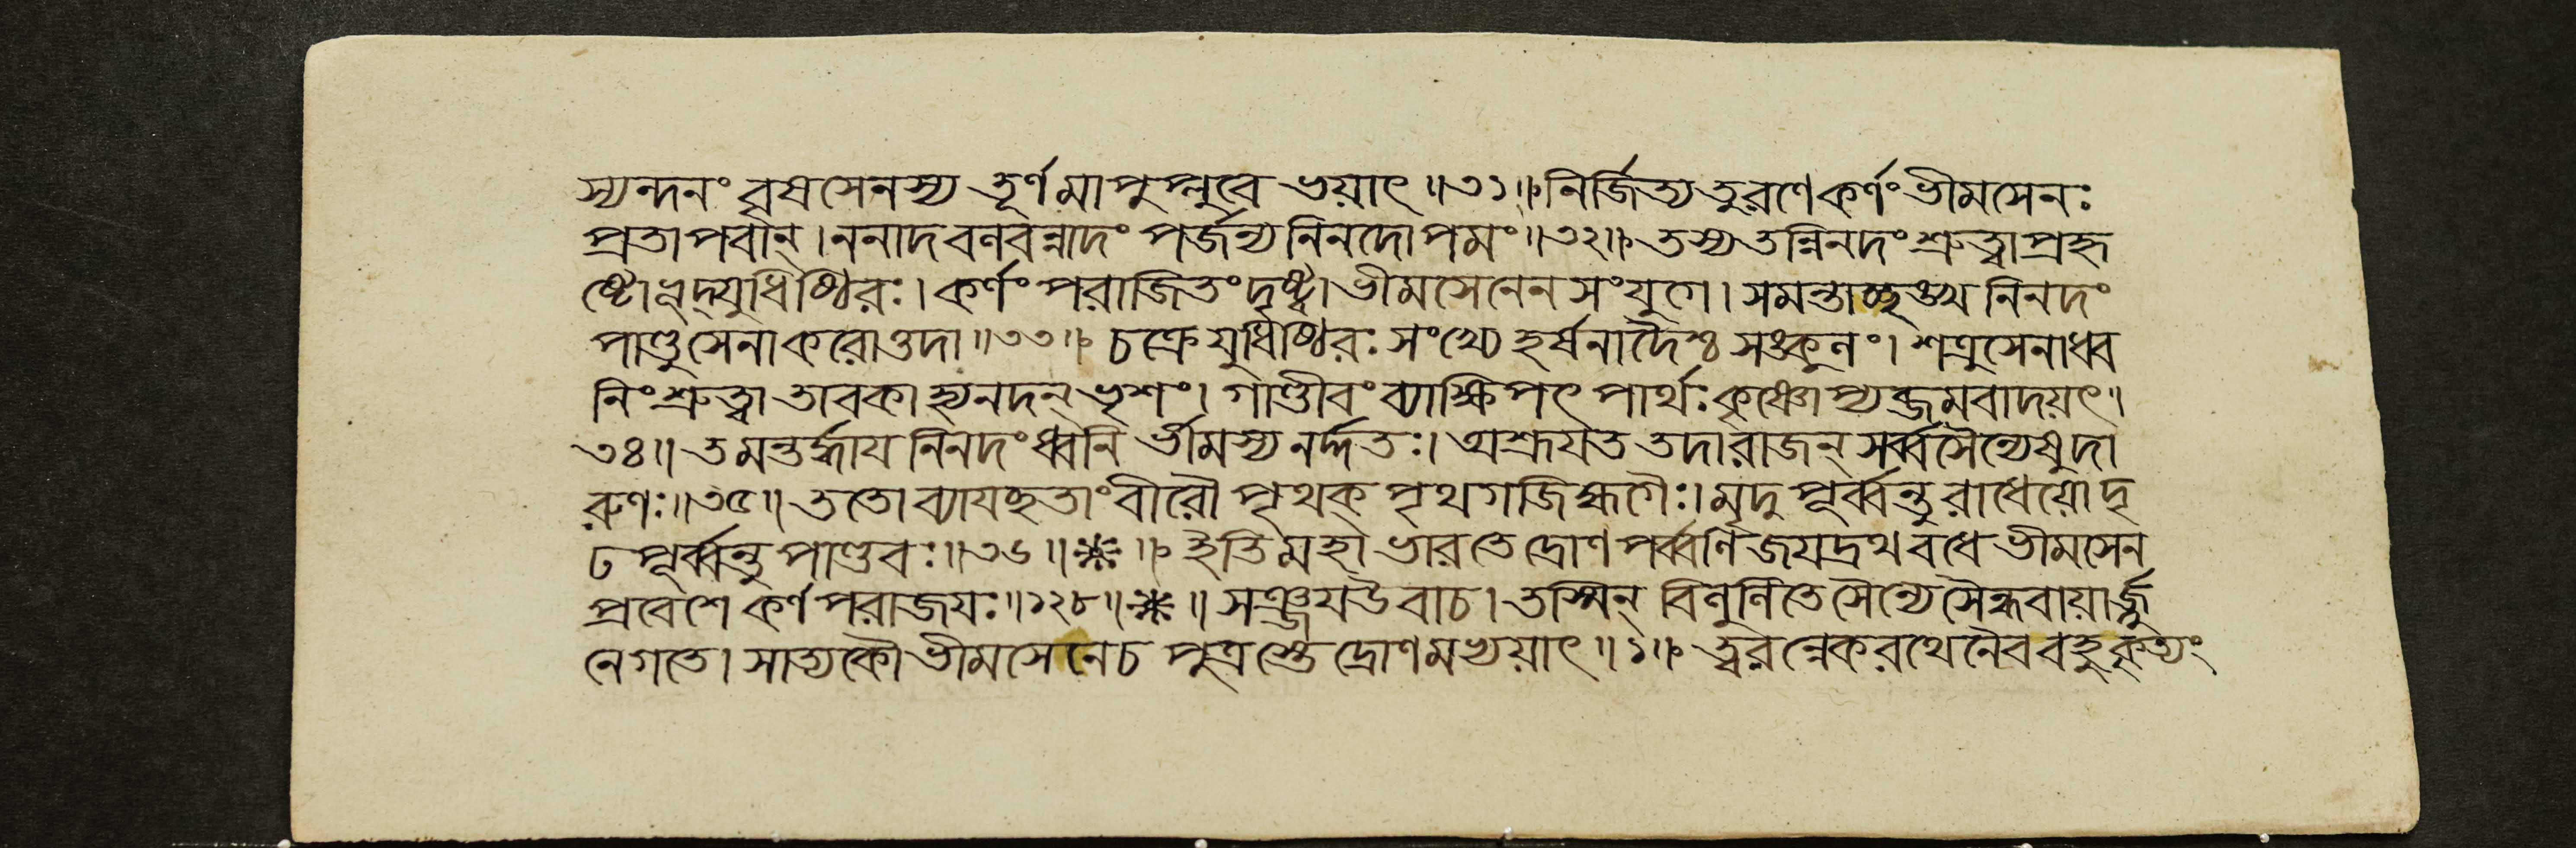 স্যন্দনং বৃষসেনস্য তূর্ণমাপুপ্লুবে ভয়াৎ॥৩১॥ নির্জিত্যতুরণেকর্ণং ভীমসেনঃ
প্রতাপবান্। ননাদবলবন্নাদং পর্জন্যনিনদোপমং॥৩২॥ তস্যতন্নিনদংশ্রুত্বাপ্রহৃ
ষ্টোভূদ্যুধিষ্ঠিরঃ। কর্ণংপরাজিতংদৃষ্ট্বাভীমসেনেনসংযুগে। সমন্তাচ্ছঙ্খনিনদং
পাণ্ডুসেনাকরোত্তদা॥৩৩॥ চক্রেযুধিষ্ঠিরঃ সংখ্যে হর্ষনাদৈশ্চসঙ্কুলং। শত্রুসেনাধ্ব
নিংশ্রুত্বা তাবকাহ্যনদন্ ভৃশং। গাণ্ডীবংব্যাক্ষিপৎ পার্থঃ কৃষ্ণোপ্যব্জমবাদয়ৎ॥
৩৪॥ তমন্তর্দ্ধায নিনদংধ্বনি র্ভীমস্যনর্দ্দতঃ। অশ্রূযত তদারাজন্ সর্ব্বসৈন্যেষুদা
রুণঃ॥৩৫॥ ততোব্যাযচ্ছতাংবীরৌ পৃথক্ পৃথগজিহ্মগৈঃ। মৃদুপূর্ব্বন্তুরাধেয়োদৃ
ঢপূর্ব্বন্তুপাণ্ডবঃ॥৩৬॥❈॥ ইতিমহাভারতেদ্রোণপর্ব্বণিজযদ্রথবধেভীমসেন
প্রবেশে কর্ণপরাজযঃ॥১২৮॥❈॥ সঞ্জযউবাচ। তস্মিন্ বিলুলিতেসৈন্যেসৈন্ধবায়ার্জ্জু
নেগতে। সাত্যকৌভীমসেনেচ পুত্রস্তে দ্রোণমভ্যয়াৎ॥১॥ ত্বরন্নেকরথেনৈববহুকৃত্যং